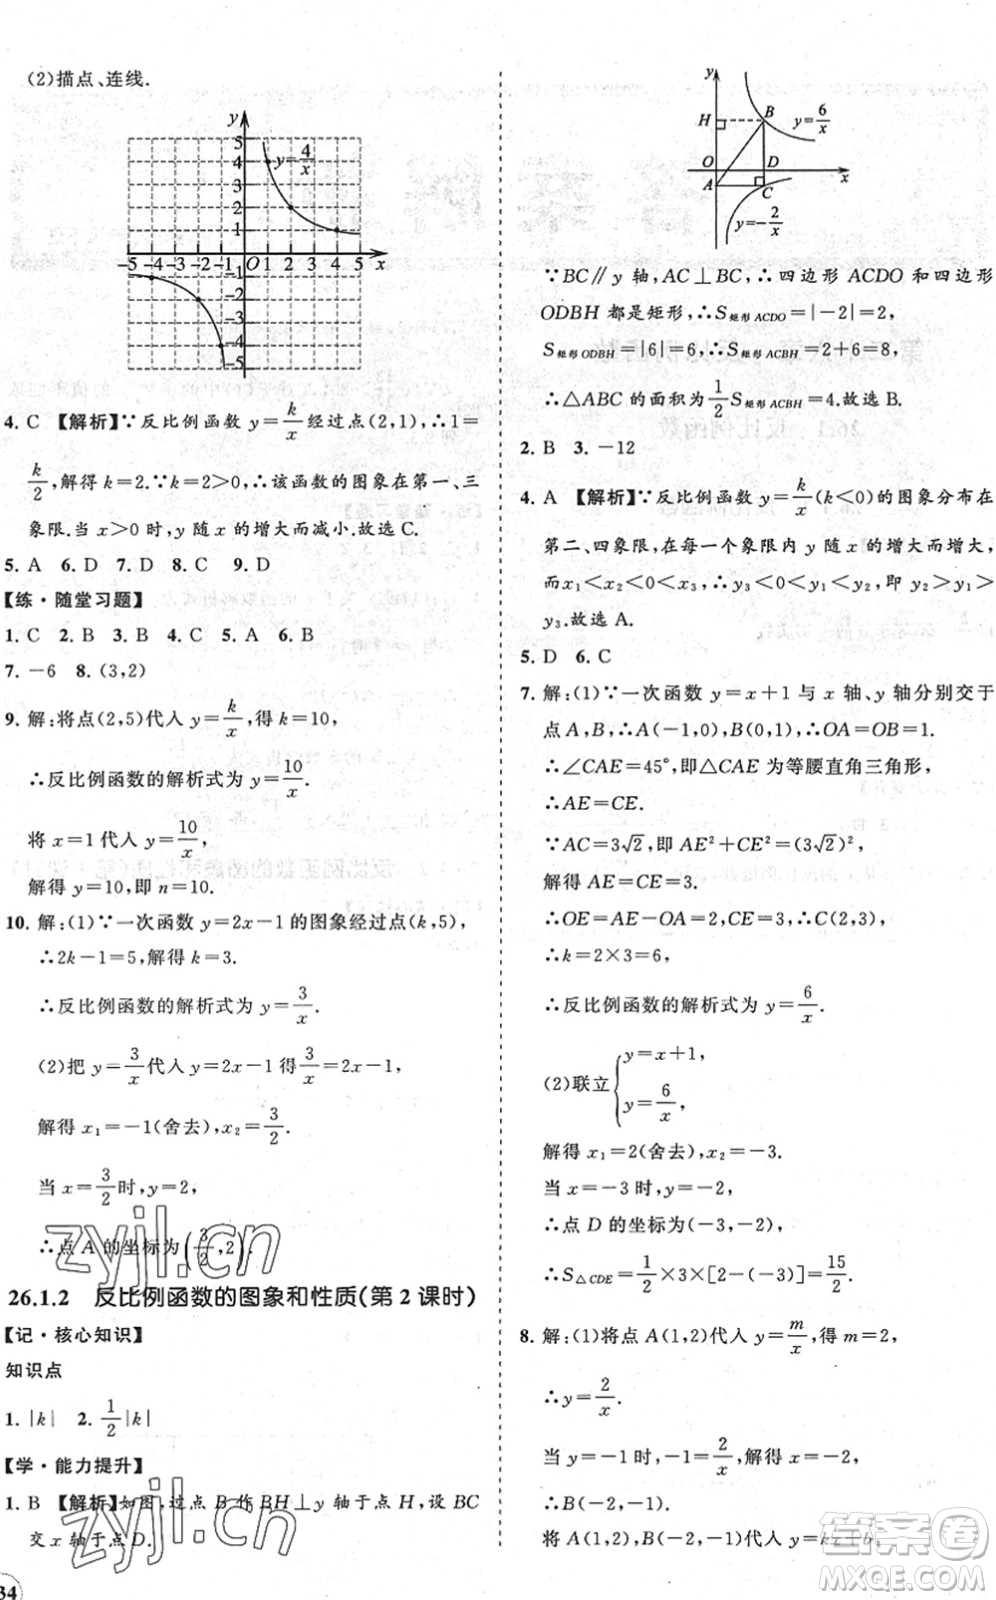 (2)描点、连线.
y
5
4
3
2
1
y=4/x
-5 -4 -3 -2 -1 O 1 2 3 4 5 x
-1
-2
-3
-4
-5
4. C 【解析】∵反比例函数 y=k/x 经过点(2,1),∴1=
k/2,解得 k=2.∵k=2>0,∴该函数的图象在第一、三
象限.当 x>0 时,y 随 x 的增大而减小.故选 C.
5. A 6. D 7. D 8. C 9. D
【练·随堂习题】
1. C 2. B 3. B 4. C 5. A 6. B
7. -6 8. (3,2)
9. 解:将点(2,5)代入 y=k/x,得 k=10,
∴反比例函数的解析式为 y=10/x.
将 x=1 代入 y=10/x,
解得 y=10,即 n=10.
10. 解:(1)∵一次函数 y=2x-1 的图象经过点(k,5),
∴2k-1=5,解得 k=3.
∴反比例函数的解析式为 y=3/x.
(2)把 y=3/x 代入 y=2x-1 得 3/x=2x-1,
解得 x₁=-1(舍去),x₂=3/2.
当 x=3/2 时,y=2,
∴点 A 的坐标为(3/2,2).
26.1.2 反比例函数的图象和性质(第 2 课时)
【记·核心知识】
知识点
1. |k| 2. 1/2|k|
【学·能力提升】
1. B 【解析】如图,过点 B 作 BH⊥y 轴于点 H,设 BC
交 x 轴于点 D.
34
y
H B y=6/x
O D x
A C
y=-2/x
∵BC∥y 轴,AC⊥BC,∴四边形 ACDO 和四边形
ODBH 都是矩形,∴S矩形 ACDO=|-2|=2,
S矩形 ODBH=|6|=6,∴S矩形 ACBH=2+6=8,
∴△ABC 的面积为 1/2 S矩形 ACBH=4.故选 B.
2. B 3. -12
4. A 【解析】∵反比例函数 y=k/x(k<0)的图象分布在
第二、四象限,在每一个象限内 y 随 x 的增大而增大,
而 x₁<x₂<0<x₃,∴y₃<0<y₁<y₂,即 y₂>y₁>
y₃.故选 A.
5. D 6. C
7. 解:(1)∵一次函数 y=x+1 与 x 轴、y 轴分别交于
点 A,B,∴A(-1,0),B(0,1),∴OA=OB=1.
∴∠CAE=45°,即△CAE 为等腰直角三角形,
∴AE=CE.
∵AC=3√2,即 AE²+CE²=(3√2)²,
解得 AE=CE=3.
∴OE=AE-OA=2,∴C(2,3),
∴k=2×3=6,
∴反比例函数的解析式为 y=6/x.
(2)联立{y=x+1,
y=6/x,
解得 x₁=2(舍去),x₂=-3.
当 x=-3 时,y=-2,
∴点 D 的坐标为(-3,-2),
∴S△CDE=1/2×3×[2-(-3)]=15/2.
8. 解:(1)将点 A(1,2)代入 y=m/x,得 m=2,
∴y=2/x.
当 y=-1 时,-1=2/x,解得 x=-2,
∴B(-2,-1).
将 A(1,2),B(-2,-1)代入 y=kx+b,
zyjl.cn
zyjl.cn
答案圈
MXQE.COM